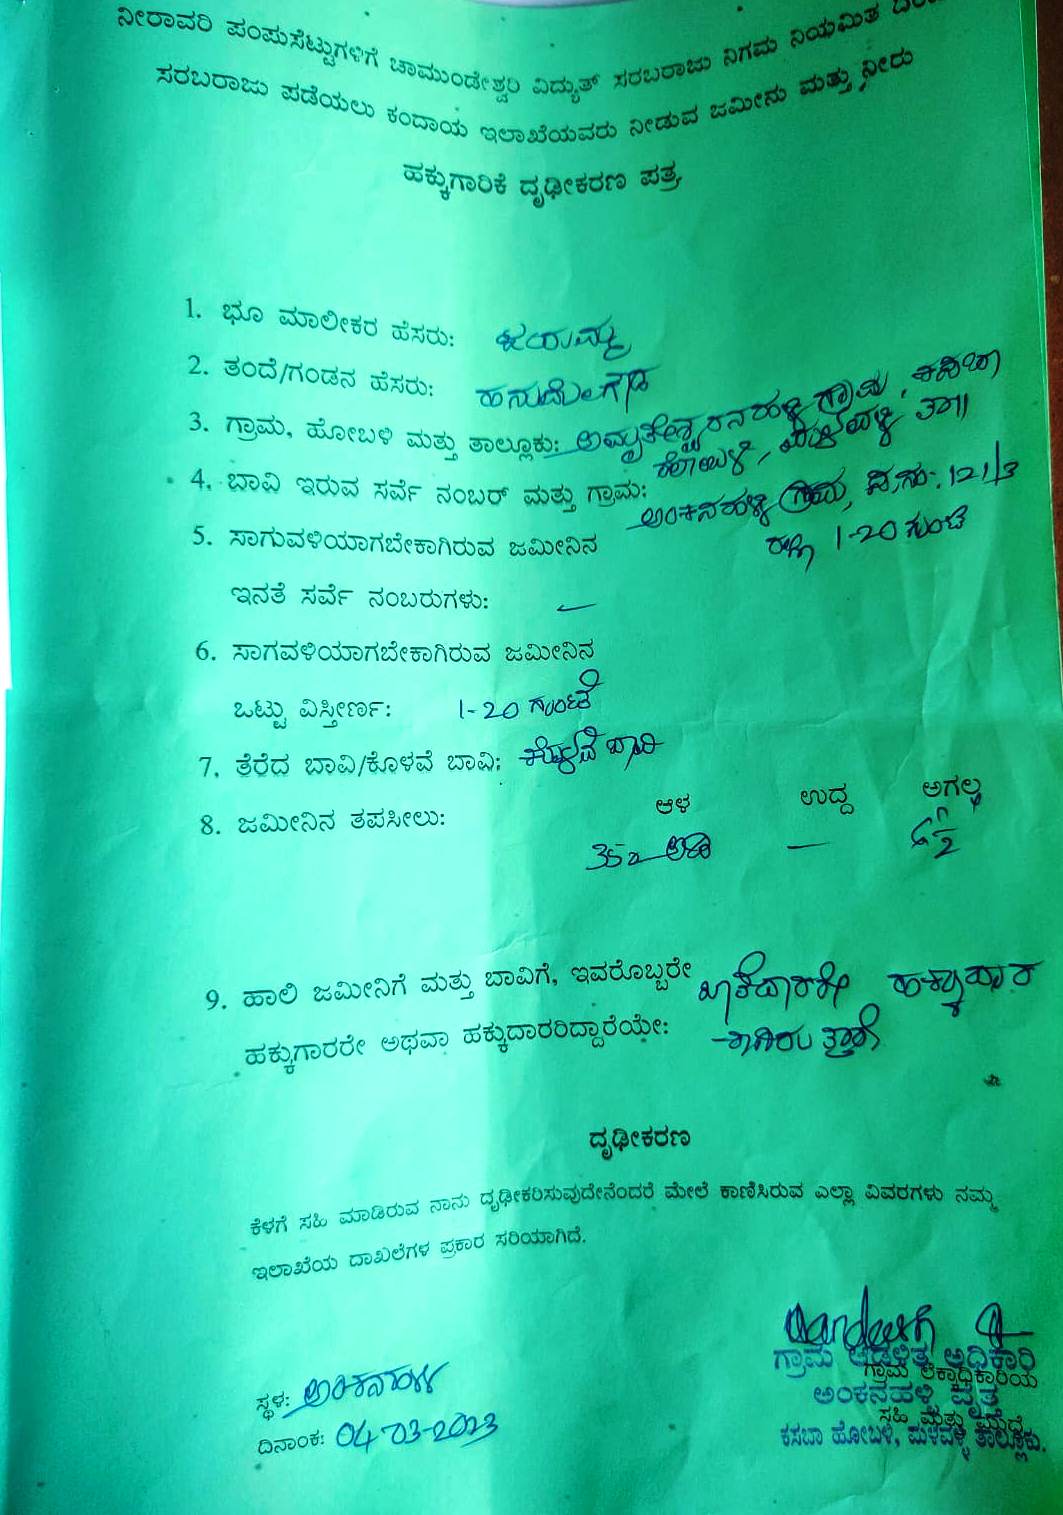 ನೀರಾವರಿ ಪಂಪುಸೆಟ್ಟುಗಳಿಗೆ ಚಾಮುಂಡೇಶ್ವರಿ ವಿದ್ಯುತ್ ಸರಬರಾಜು ನಿಗಮ ನಿಯಮಿತ
ಸರಬರಾಜು ಪಡೆಯಲು ಕಂದಾಯ ಇಲಾಖೆಯವರು ನೀಡುವ ಜಮೀನು ಮತ್ತು ನೀರು
ಹಕ್ಕುಗಾರಿಕೆ ದೃಢೀಕರಣ ಪತ್ರ
1. ಭೂ ಮಾಲೀಕರ ಹೆಸರು: ಜಯಮ್ಮ
2. ತಂದೆ/ಗಂಡನ ಹೆಸರು: ಹನುಮೇಗೌಡ
3. ಗ್ರಾಮ, ಹೋಬಳಿ ಮತ್ತು ತಾಲ್ಲೂಕು: ಅಮೃತೇಶ್ವರನಹಳ್ಳಿ ಗ್ರಾಮ, ಕಸಬಾ
ಹೋಬಳಿ, ಮಳವಳ್ಳಿ ತಾ||
4. ಬಾವಿ ಇರುವ ಸರ್ವೆ ನಂಬರ್ ಮತ್ತು ಗ್ರಾಮ: ಅಂಕನಹಳ್ಳಿ ಗ್ರಾಮ, ಸ.ನಂ. 121/3
ರಲ್ಲಿ 1-20 ಗುಂಟೆ
5. ಸಾಗುವಳಿಯಾಗಬೇಕಾಗಿರುವ ಜಮೀನಿನ
ಇನತೆ ಸರ್ವೆ ನಂಬರುಗಳು: —
6. ಸಾಗವಳಿಯಾಗಬೇಕಾಗಿರುವ ಜಮೀನಿನ
ಒಟ್ಟು ವಿಸ್ತೀರ್ಣ: 1-20 ಗುಂಟೆ
7. ತೆರೆದ ಬಾವಿ/ಕೊಳವೆ ಬಾವಿ: ಕೊಳವೆ ಬಾವಿ
ಆಳ ಉದ್ದ ಅಗಲ
8. ಜಮೀನಿನ ತಪಸೀಲು: 350 ಅಡಿ — 6 1/2
9. ಹಾಲಿ ಜಮೀನಿಗೆ ಮತ್ತು ಬಾವಿಗೆ, ಇವರೊಬ್ಬರೇ ಖಾತೆದಾರರೇ ಹಕ್ಕುದಾರ
ಹಕ್ಕುಗಾರರೇ ಅಥವಾ ಹಕ್ಕುದಾರರಿದ್ದಾರೆಯೇ: ರಾಗಿರುತ್ತಾರೆ
ದೃಢೀಕರಣ
ಕೆಳಗೆ ಸಹಿ ಮಾಡಿರುವ ನಾನು ದೃಢೀಕರಿಸುವುದೇನೆಂದರೆ ಮೇಲೆ ಕಾಣಿಸಿರುವ ಎಲ್ಲಾ ವಿವರಗಳು ನಮ್ಮ
ಇಲಾಖೆಯ ದಾಖಲೆಗಳ ಪ್ರಕಾರ ಸರಿಯಾಗಿದೆ.
ಗ್ರಾಮ ಆಡಳಿತ ಅಧಿಕಾರಿ
ಗ್ರಾಮ ಲೆಕ್ಕಾಧಿಕಾರಿಯ
ಅಂಕನಹಳ್ಳಿ ವೃತ್ತ
ಸಹಿ ಮತ್ತು ಮುದ್ರೆ
ಕಸಬಾ ಹೋಬಳಿ, ಮಳವಳ್ಳಿ ತಾಲ್ಲೂಕು.
ಸ್ಥಳ: ಅಂಕನಹಳ್ಳಿ
ದಿನಾಂಕ: 04-03-2023